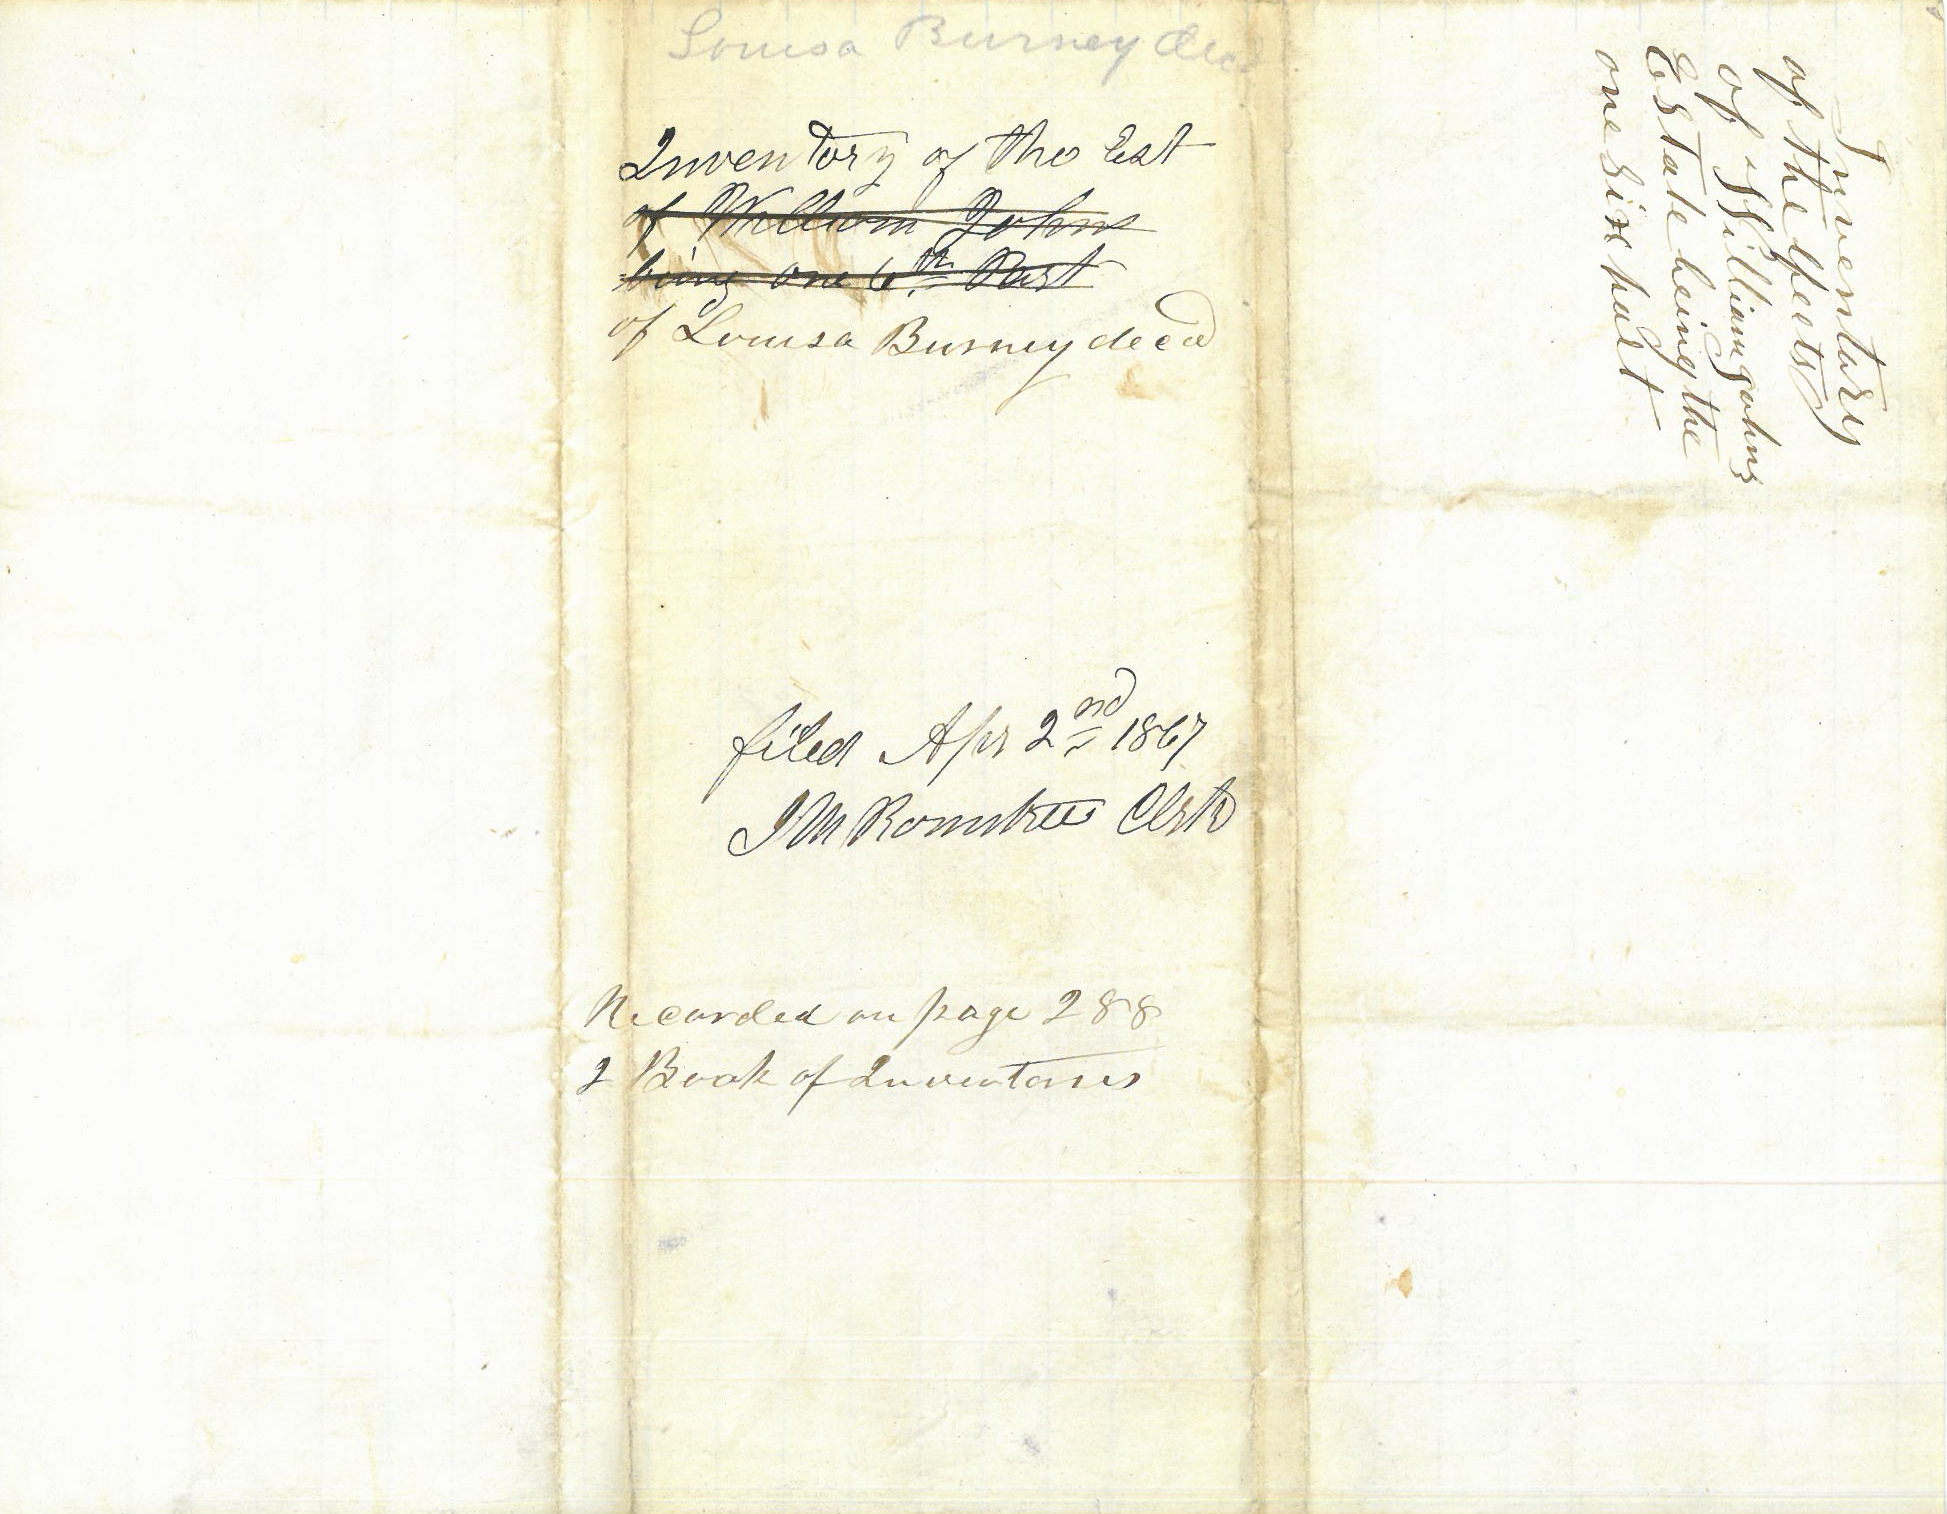 Louisa Burney decd
Inventory of the Est
of William Johns
being one 6th Part
of Louisa Burney decd
filed Apr 2nd 1867
J M Rountree Clrk
Recorded on page 288
2 Book of Inventories
Inventory
of the Efects
of William Johns
Estate being the
one Six part